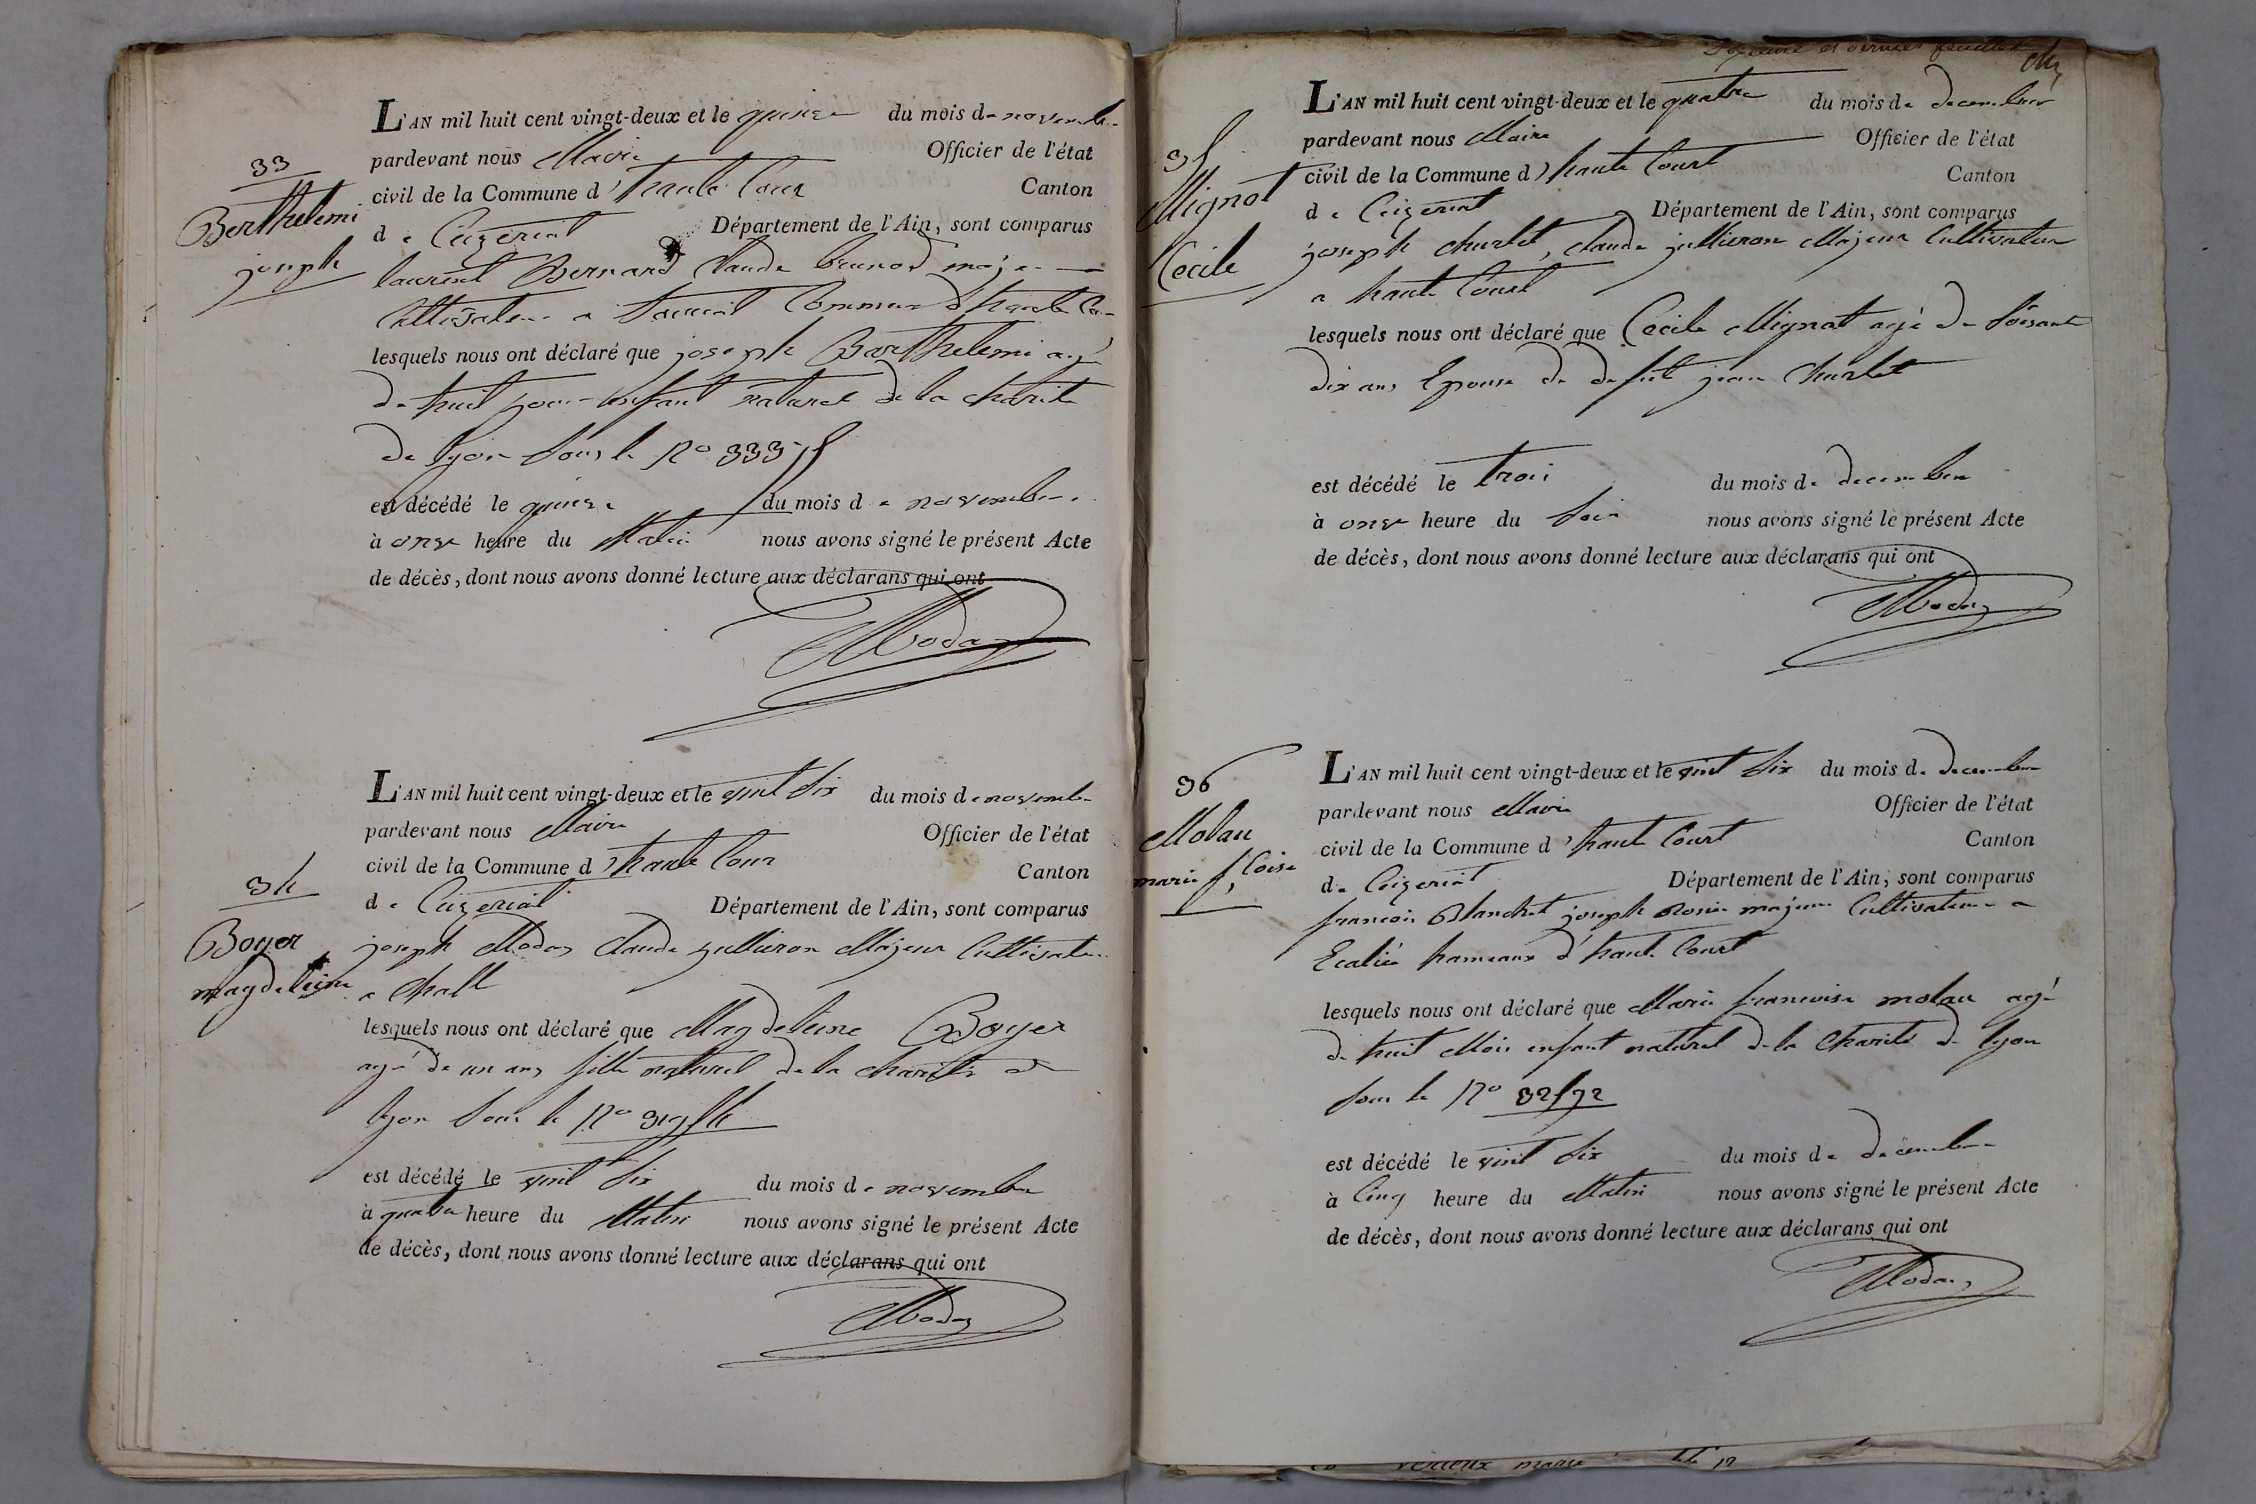 33
Berthelemi
joseph
L'AN mil huit cent vingt-deux et le quinze du mois de novembre
pardevant nous Maire Officier de l'état
civil de la Commune d'haute Cour Canton
de Ceizeriat Département de l'Ain, sont comparus
laurent Bernard Claude brunod maje
Cultivateur a Commune d'haute Cour
lesquels nous ont déclaré que joseph Barthelemi agé
de huit jour enfant naturel de la charité
de lyon sous le No 33375
est décédé le quinze du mois de novembre
à onze heure du Matin nous avons signé le présent Acte
de décès, dont nous avons donné lecture aux déclarans qui ont
Modas
34
Boyer
magdeleine
L'AN mil huit cent vingt-deux et le vint six du mois de novembre
pardevant nous Maire Officier de l'état
civil de la Commune d'haute Cour Canton
de Ceizeriat Département de l'Ain, sont comparus
joseph Modas Claude jullieron Majeur Cultivateur
a Chall
lesquels nous ont déclaré que Magdeleine Boyer
agé de un ans fille naturel de la charité de
lyon sous le No 31954
est décédé le vint six du mois de novembre
à quatre heure du Matin nous avons signé le présent Acte
de décès, dont nous avons donné lecture aux déclarans qui ont
Modas
et dernier feuillet
35
Mignot
Cecile
L'AN mil huit cent vingt-deux et le quatre du mois de decembre
pardevant nous Maire Officier de l'état
civil de la Commune d'haute Court Canton
de Ceizeriat Département de l'Ain, sont comparus
joseph churlet, claude jullieron Majeur Cultivateur
a haute Court
lesquels nous ont déclaré que Cecile Mignot agé de soisante
dix ans Epouse de defut jean Churlet
est décédé le trois du mois de decembre
à onze heure du soir nous avons signé le présent Acte
de décès, dont nous avons donné lecture aux déclarans qui ont
Modas
36
Molau
marie fcoise
L'AN mil huit cent vingt-deux et le vint six du mois de decembre
pardevant nous Maire Officier de l'état
civil de la Commune d'haute Court Canton
de Ceizeriat Département de l'Ain, sont comparus
francois Blanchet joseph Rosier majeur Cultivateur a
hameaux d'haute Court
lesquels nous ont déclaré que Marie francoise molau agé
de huit Mois enfant naturel de la Charité de lyon
sous le No 32572
est décédé le vint six du mois de decembre
à Cinq heure du Matin nous avons signé le présent Acte
de décès, dont nous avons donné lecture aux déclarans qui ont
Modas